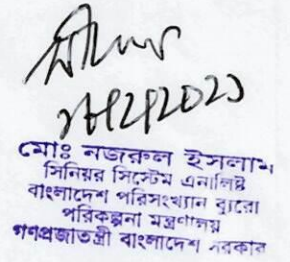 মোঃ নজরুল ইসলাম
সিনিয়র সিস্টেম এনালিষ্ট
বাংলাদেশ পরিসংখ্যান ব্যুরো
পরিকল্পনা মন্ত্রণালয়
গণপ্রজাতন্ত্রী বাংলাদেশ সরকার